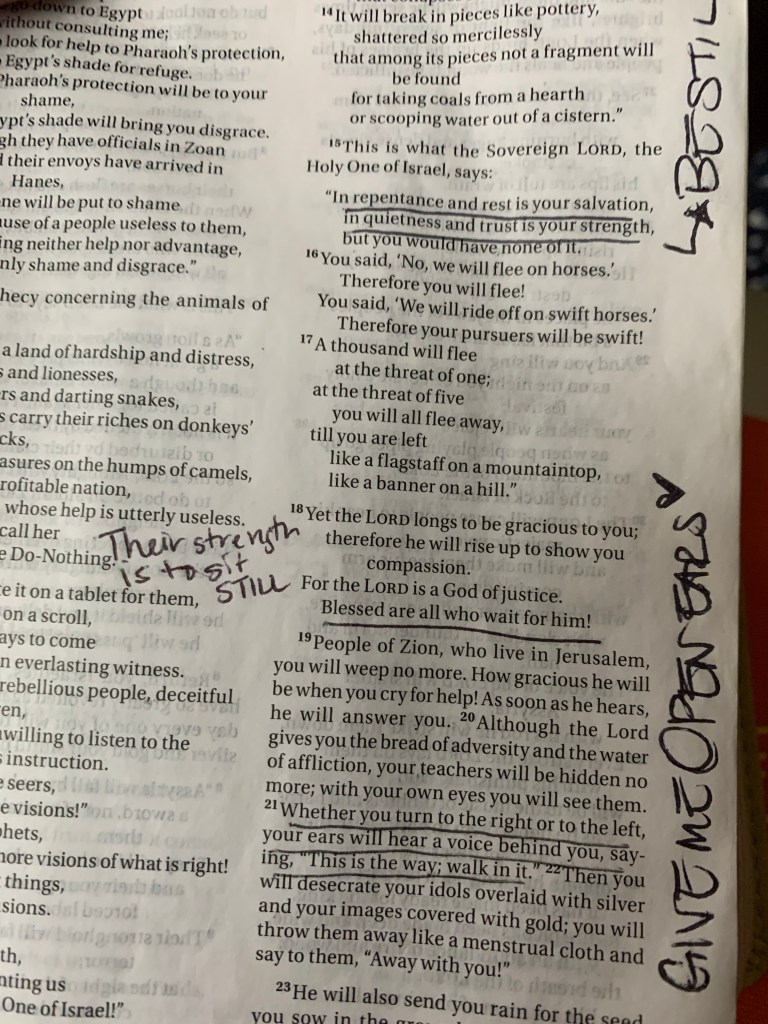 go down to Egypt
without consulting me;
look for help to Pharaoh's protection,
Egypt's shade for refuge.
Pharaoh's protection will be to your
shame,
ypt's shade will bring you disgrace.
gh they have officials in Zoan
their envoys have arrived in
Hanes,
ne will be put to shame
use of a people useless to them,
ing neither help nor advantage,
nly shame and disgrace."
hecy concerning the animals of
a land of hardship and distress,
s and lionesses,
rs and darting snakes,
s carry their riches on donkeys'
cks,
asures on the humps of camels,
rofitable nation,
whose help is utterly useless.
call her
e Do-Nothing.
Their strength
is to sit
STILL
te it on a tablet for them,
on a scroll,
ays to come
n everlasting witness.
rebellious people, deceitful
en,
willing to listen to the
s instruction.
e seers,
e visions!"
phets,
more visions of what is right!
things,
sions.
th,
nting us
One of Israel!"
14 It will break in pieces like pottery,
shattered so mercilessly
that among its pieces not a fragment will
be found
for taking coals from a hearth
or scooping water out of a cistern."
15 This is what the Sovereign LORD, the
Holy One of Israel, says:
"In repentance and rest is your salvation,
in quietness and trust is your strength,
but you would have none of it.
16 You said, 'No, we will flee on horses.'
Therefore you will flee!
You said, 'We will ride off on swift horses.'
Therefore your pursuers will be swift!
17 A thousand will flee
at the threat of one;
at the threat of five
you will all flee away,
till you are left
like a flagstaff on a mountaintop,
like a banner on a hill."
18 Yet the LORD longs to be gracious to you;
therefore he will rise up to show you
compassion.
For the LORD is a God of justice.
Blessed are all who wait for him!
19 People of Zion, who live in Jerusalem,
you will weep no more. How gracious he will
be when you cry for help! As soon as he hears,
he will answer you. 20 Although the Lord
gives you the bread of adversity and the water
of affliction, your teachers will be hidden no
more; with your own eyes you will see them.
21 Whether you turn to the right or to the left,
your ears will hear a voice behind you, say-
ing, "This is the way; walk in it." 22 Then you
will desecrate your idols overlaid with silver
and your images covered with gold; you will
throw them away like a menstrual cloth and
say to them, "Away with you!"
23 He will also send you rain for the seed
you sow in the
BESTIL
GIVE ME OPEN EARS